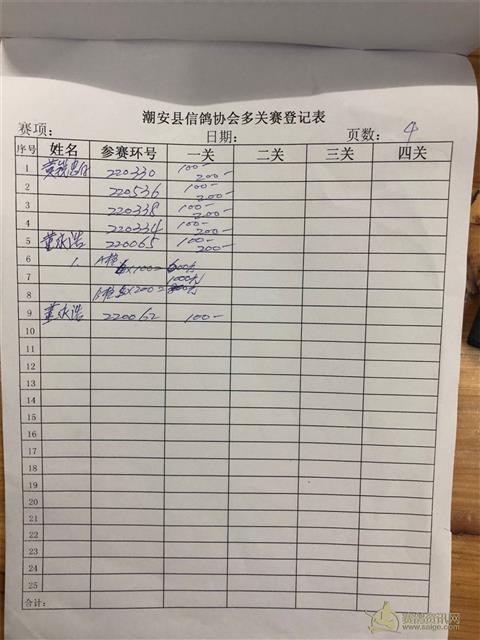 潮安县信鸽协会多关赛登记表
赛项: 日期: 页数: 4
序号 姓名 参赛环号 一关 二关 三关 四关
1 220330 100- 200-
2 220536 100- 200-
3 220338 100- 200-
4 220334 100- 200-
5 董永浩 220065 100- 200-
6 A组 6×100=600元
7 1000元
8 B组 5×200=
9 董永浩 220062 100-
10
11
12
13
14
15
16
17
18
19
20
21
22
23
24
25
合计:
赛鸽资讯网
www.saige.com